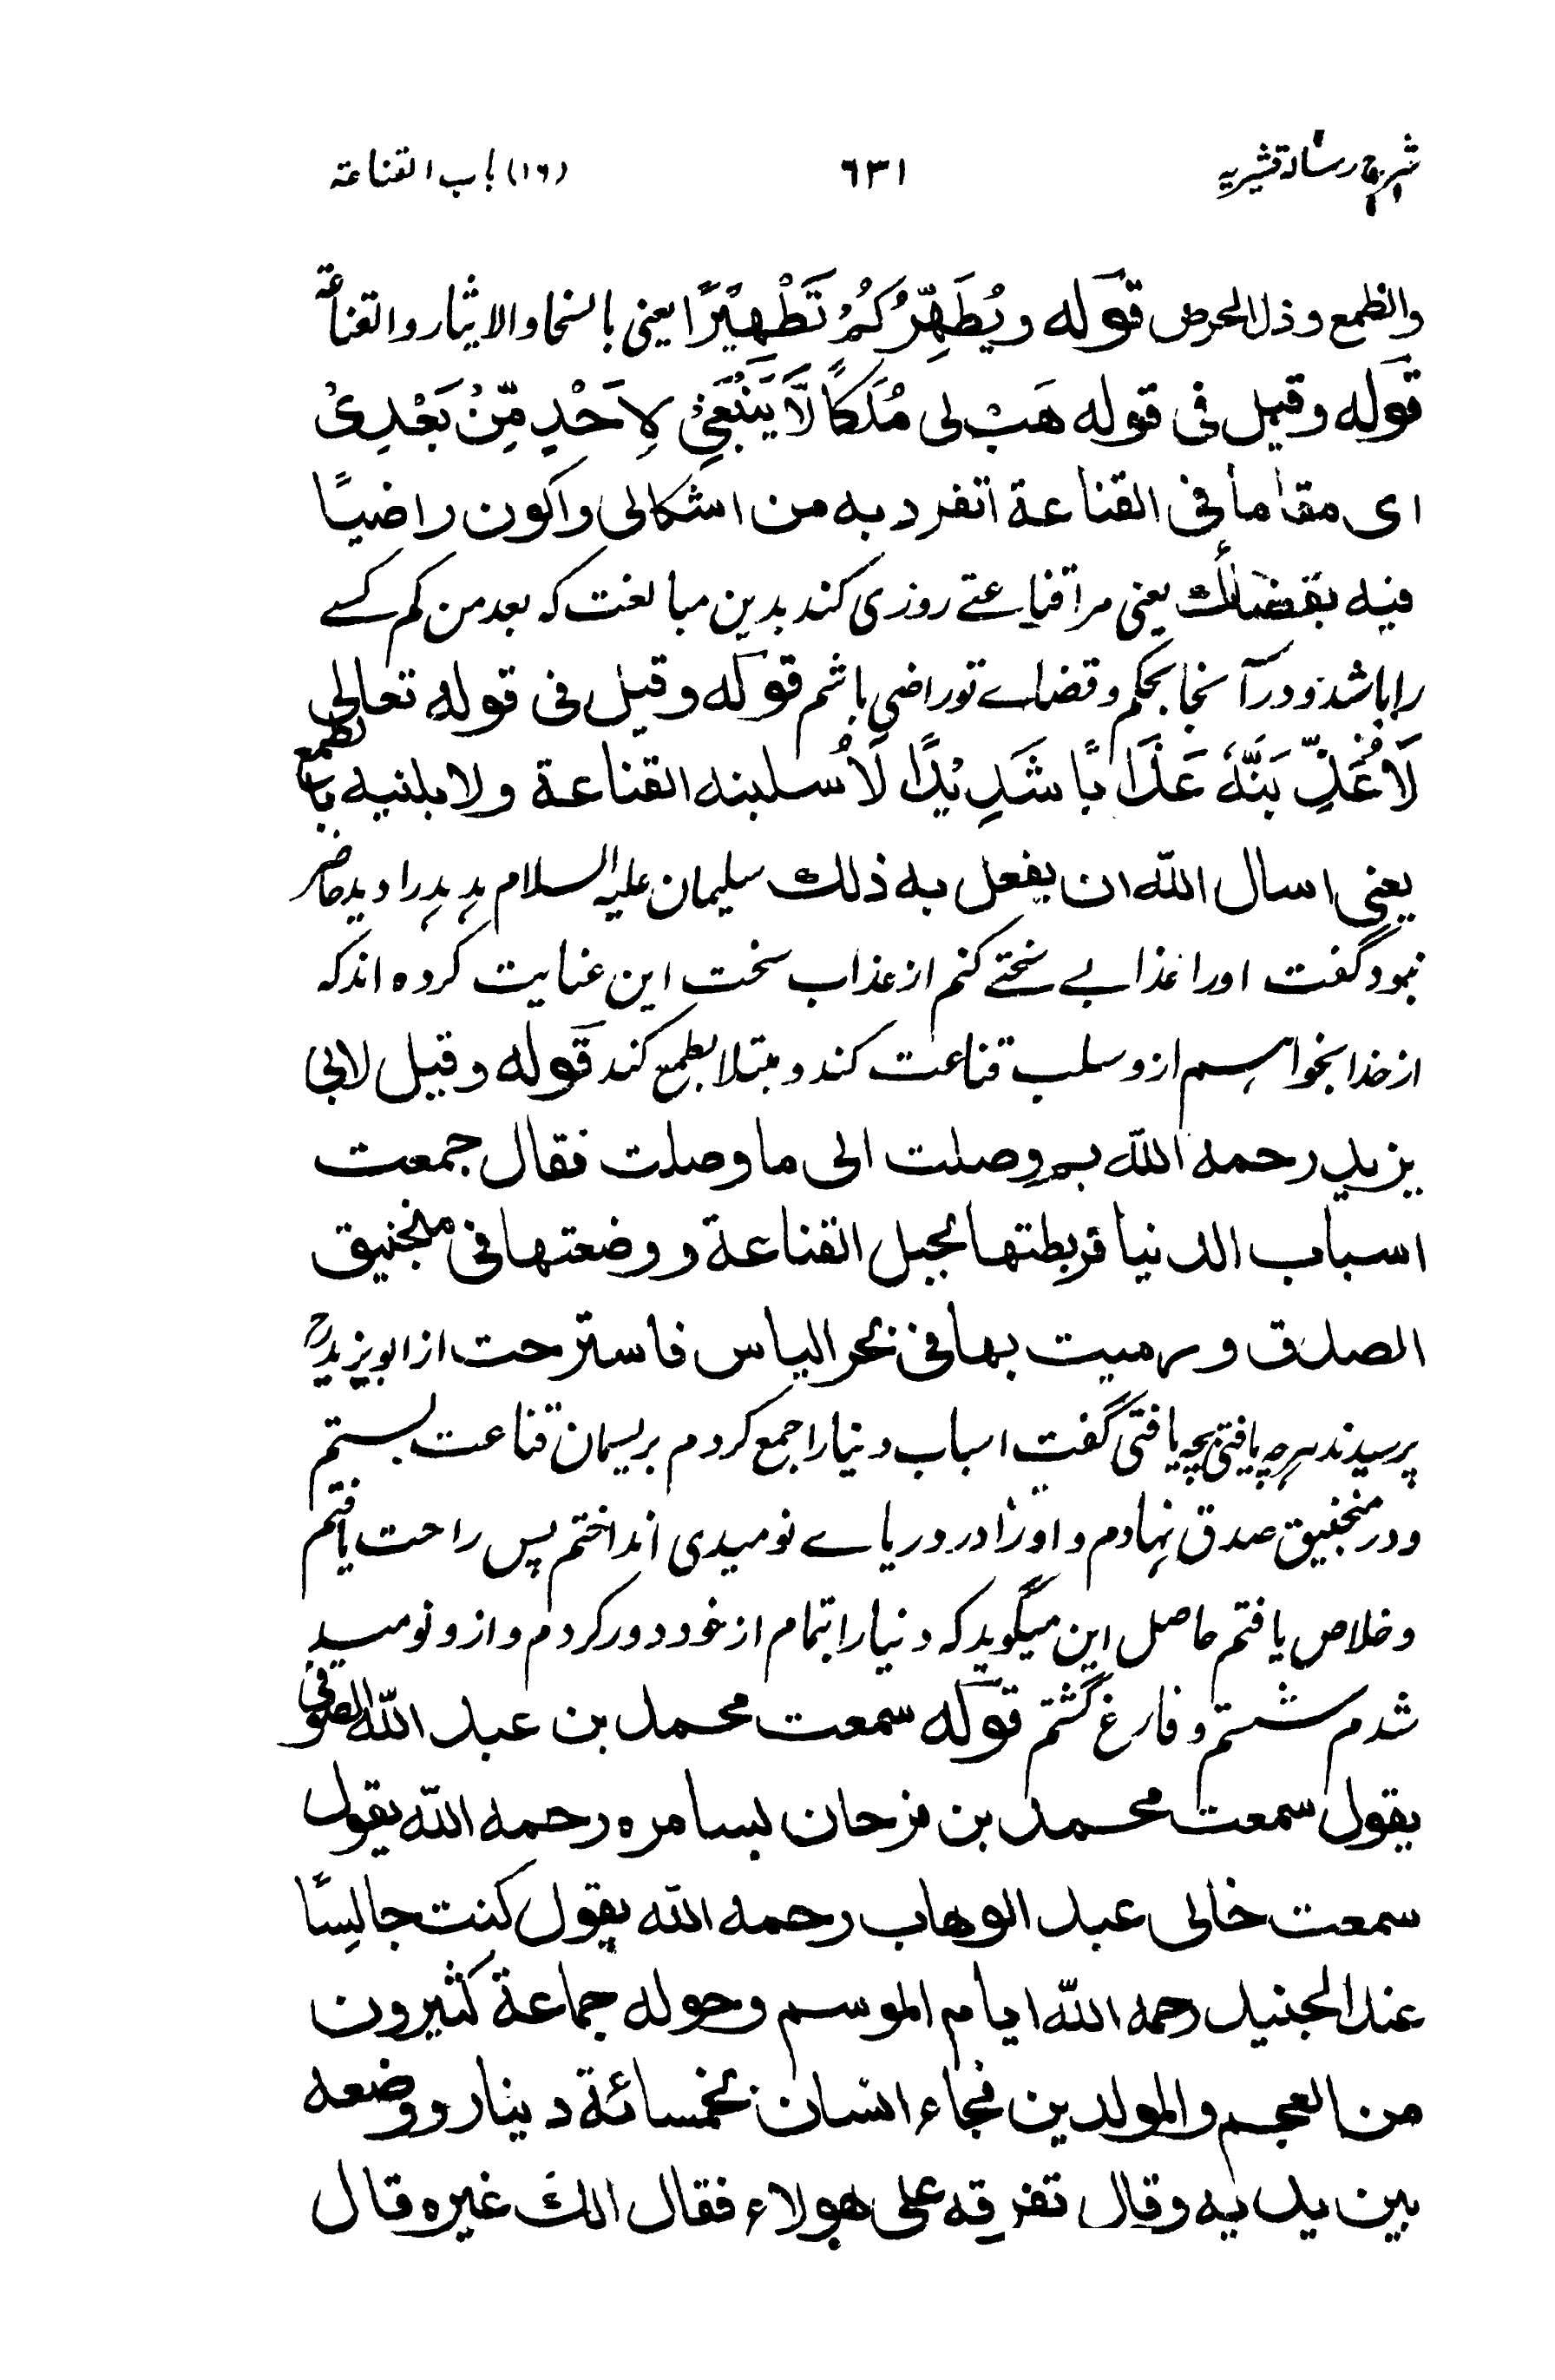 شرح رسالہ قشیریہ ٦٣١ (١٦) باب القناعتہ
والطمع وذل الحرص قوله ويُطَهِّرَكُمْ تَطْهِيْرًا یعنی بالسخا والایثار والقناعۃ
قوله وقيل فى قوله هَبْ لى مُلْكًا لَّا يَنْبَغِىْ لِاَحَدٍ مِّنْ بَعْدِىْ
اى مقاما فى القناعة اتفرد به من اشكالى واكون راضيًا
فيه بقضائك یعنی مرا قناعتے روزی کند بدین مبالغت کہ بعد من کم کسے
را باشد و در آنجا بحکم و قضاے تو راضی باشم قوله وقيل فى قوله تعالى
لَاُعَذِّبَنَّهٗ عَذَابًا شَدِيْدًا لَاُسلبنه القناعة ولابلنيه بالطمع
يعنى اسال الله ان يفعل به ذلك سلیمان علیہ السلام ہدہد را دید حاضر
نبود گفت اورا عذابے سختے کنم از عذاب سخت این عنایت کرده اند کہ
از خدا بخواہیم از و سلب قناعت کند و مبتلا بطمع کند قوله وقيل لابى
يزيد رحمه الله بم وصلت الى ما وصلت فقال جمعت
اسباب الدنيا فربطتها بحبل القناعة ووضعتها فى منجنيق
الصدق ورميت بها فى بحر الياس فاسترحت از ابو یزیدؒ
پرسیدند ہرچہ یافتی بچہ یافتی گفت اسباب دنیا را جمع کردم بریسمان قناعت بستم
و در منجنیق صدق نہادم و اورا در دریاے نومیدی انداختم پس راحت یافتم
و خلاص یافتم حاصل این میگوید کہ دنیا را بتمام از خود دور کردم و ازو نومید
شدم نشستم و فارغ گشتم قوله سمعت محمد بن عبد الله الصوفى
يقول سمعت محمد بن فرحان بسامره رحمه الله يقول
سمعت خالى عبد الوهاب رحمه الله يقول كنت جالسًا
عند الجنيد رحمه الله ايام الموسم وحوله جماعة كثيرون
من العجم والمولدين فجاء انسان بخمسائة دينار ووضعه
بين يديه وقال تفرقه على هولاء فقال الك غيره قال